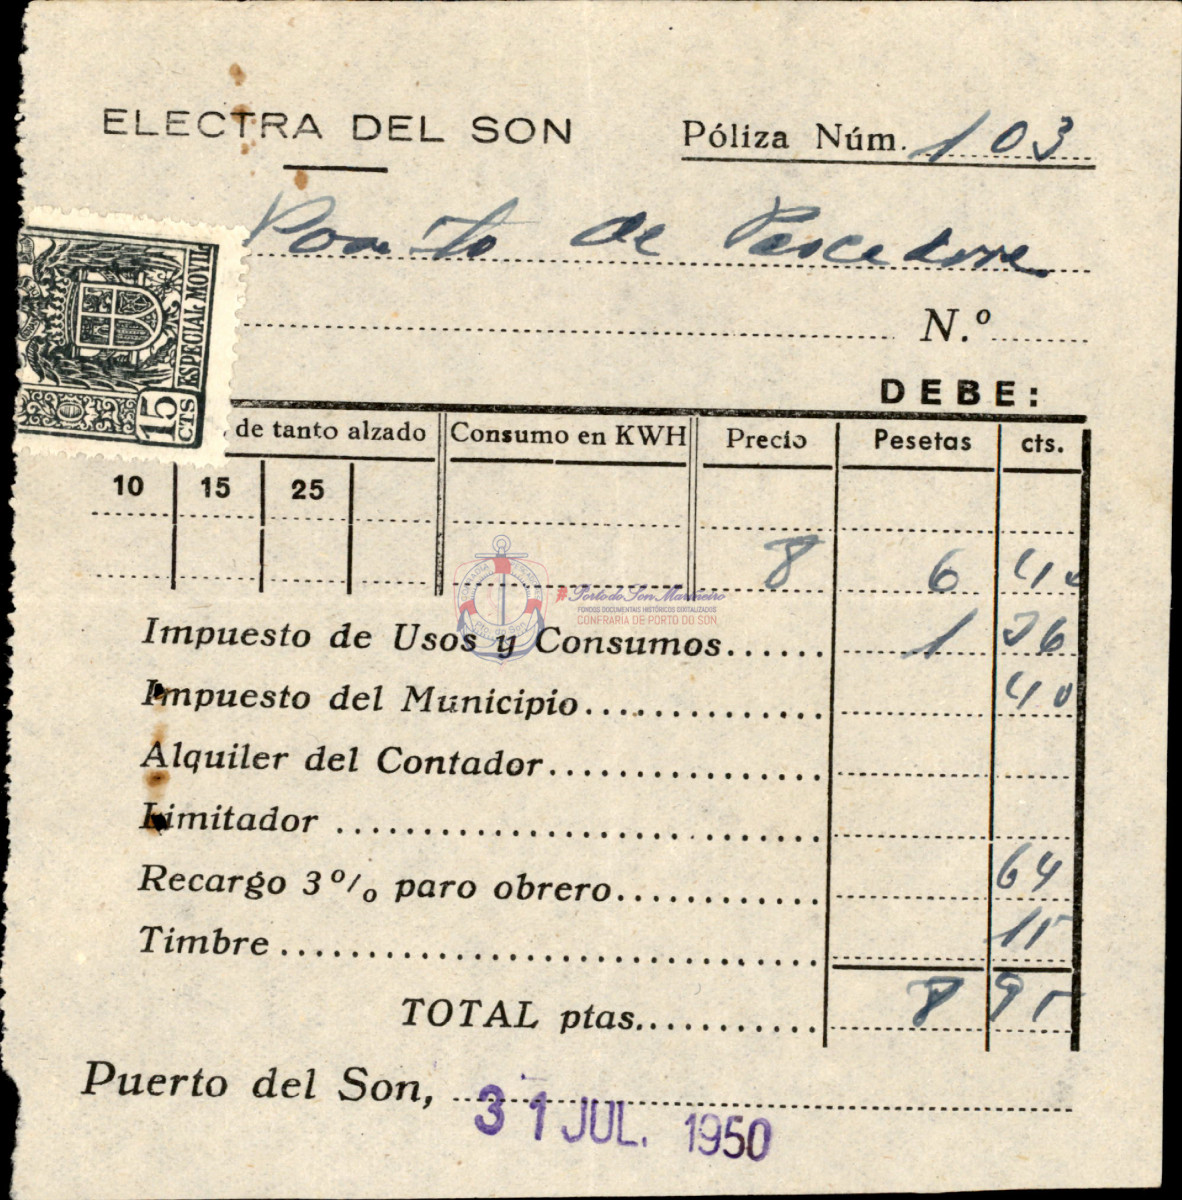 ELECTRA DEL SON
Póliza Núm. 103
de
N.º
ESPECIAL MOVIL
15 CTS
DEBE:
de tanto alzado Consumo en KWH Precio Pesetas cts.
10 15 25
8 6 40
#PortodoSonMariñeiro
FONDOS DOCUMENTAIS HISTÓRICOS DIXITALIZADOS
CONFRARÍA DE PORTO DO SON
Pto. do Son
Impuesto de Usos y Consumos...... 1 36
Impuesto del Municipio............. 40
Alquiler del Contador................
Limitador ............................
Recargo 3 º/o paro obrero............ 64
Timbre ............................... 15
TOTAL ptas........... 8 95
Puerto del Son, 31 JUL. 1950